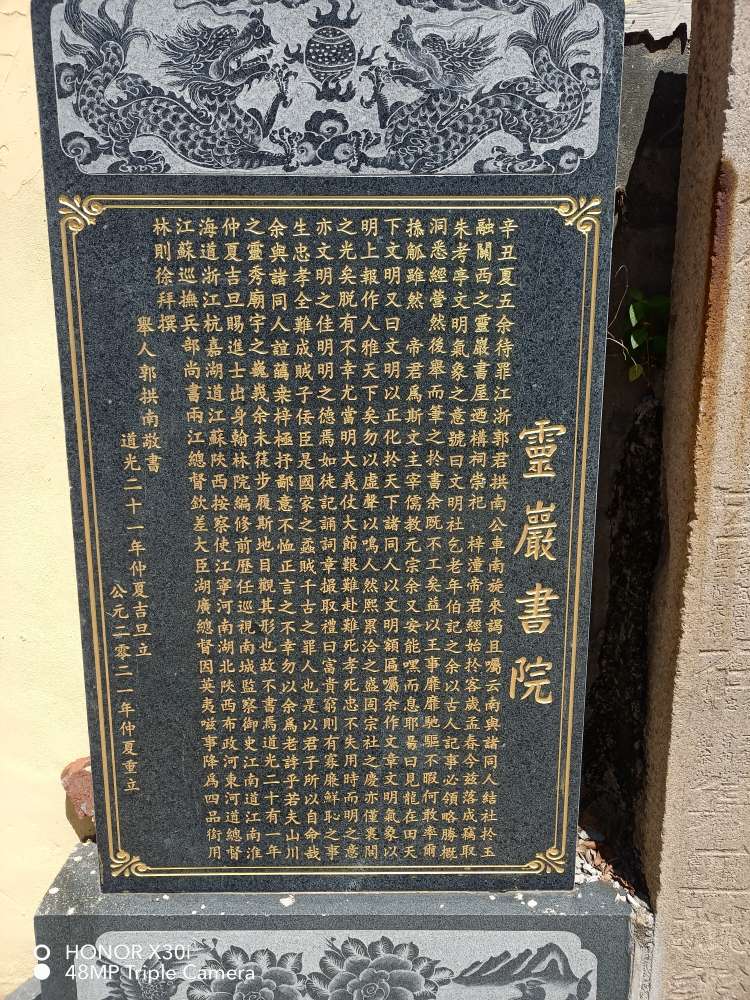 靈巖書院
辛丑夏五余待罪江浙郭君拱南公車南旋來謁且囑云南與諸同人結社於玉
融關西之靈巖書屋迺構祠崇祀 梓潼帝君經始於客歲孟春今兹落成竊取
朱考亭文明氣象之意號曰文明社乞老年伯記之余以古人記事必領略勝概
洞悉經營然後舉而筆之於書余既不工矣益以王事靡靡馳驅不暇何敢率爾
操觚雖然 帝君爲斯文主宰儒教元宗余又安能嘿而息耶易曰見龍在田天
下文明又曰文明以正化於天下諸同人以文明額區囑余作文章文明氣象以
明上報作人雅天下矣勿以虛聲以鳴人然熙累洽之盛固宗社之慶亦僅襄閭
之光矣脱有不幸尤當明大義仗大節艱難赴難死孝死忠不失用時而明之意
亦文明之佳明明之德焉如徒記誦詞章撮取禮曰富貴窮則有寡廉鮮恥之事
生忠孝全難成賊子佞臣是國家之蟊賊千古之罪人也是以君子所以自命哉
余與諸同人誼藹桒梓極抒鄙意不恤正言之不幸勿以余爲老誖乎若夫山川
之靈秀廟宇之巍峩余未從步履斯地目觀其形也故不書焉道光二十有一年
仲夏吉旦賜進士出身翰林院編修前歷任巡視南城監察御史江南道江南淮
海道浙江杭嘉湖道江蘇陝西按察使江寧河南湖北陝西布政河東河道總督
江蘇巡撫兵部尚書兩江總督欽差大臣湖廣總督因英夷嗞事降爲四品銜用
林則徐拜撰
舉人郭拱南敬書
道光二十一年仲夏吉旦立
公元二零二一年仲夏重立
HONOR X30i
48MP Triple Camera